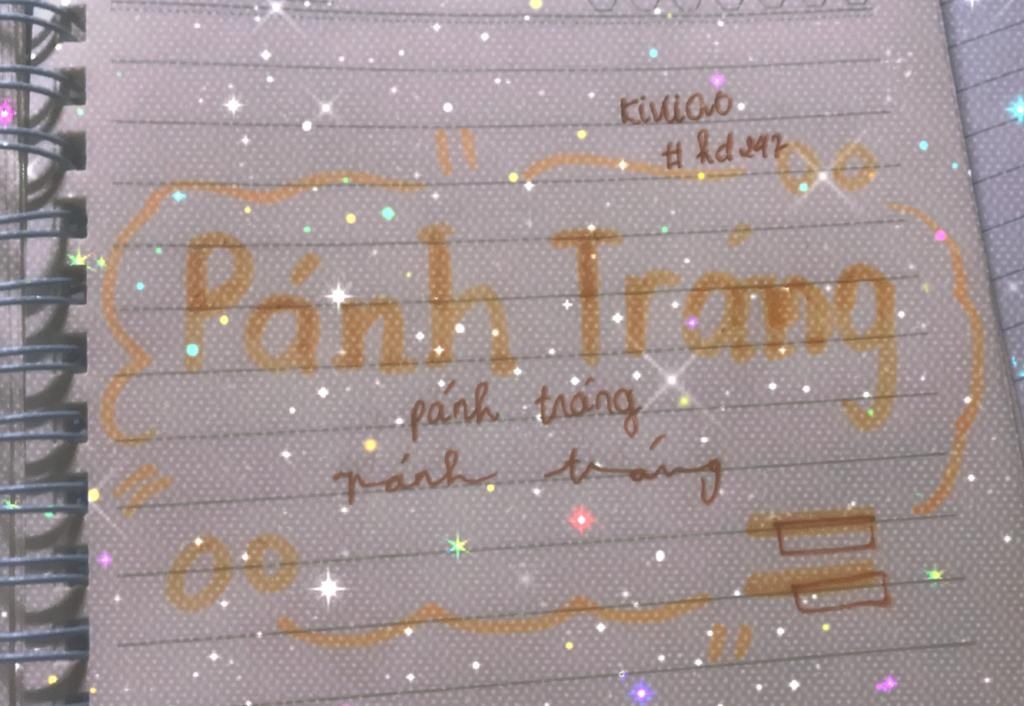 kiuiao
# hd292
Pánh Tráng
pánh tráng
pánh tráng